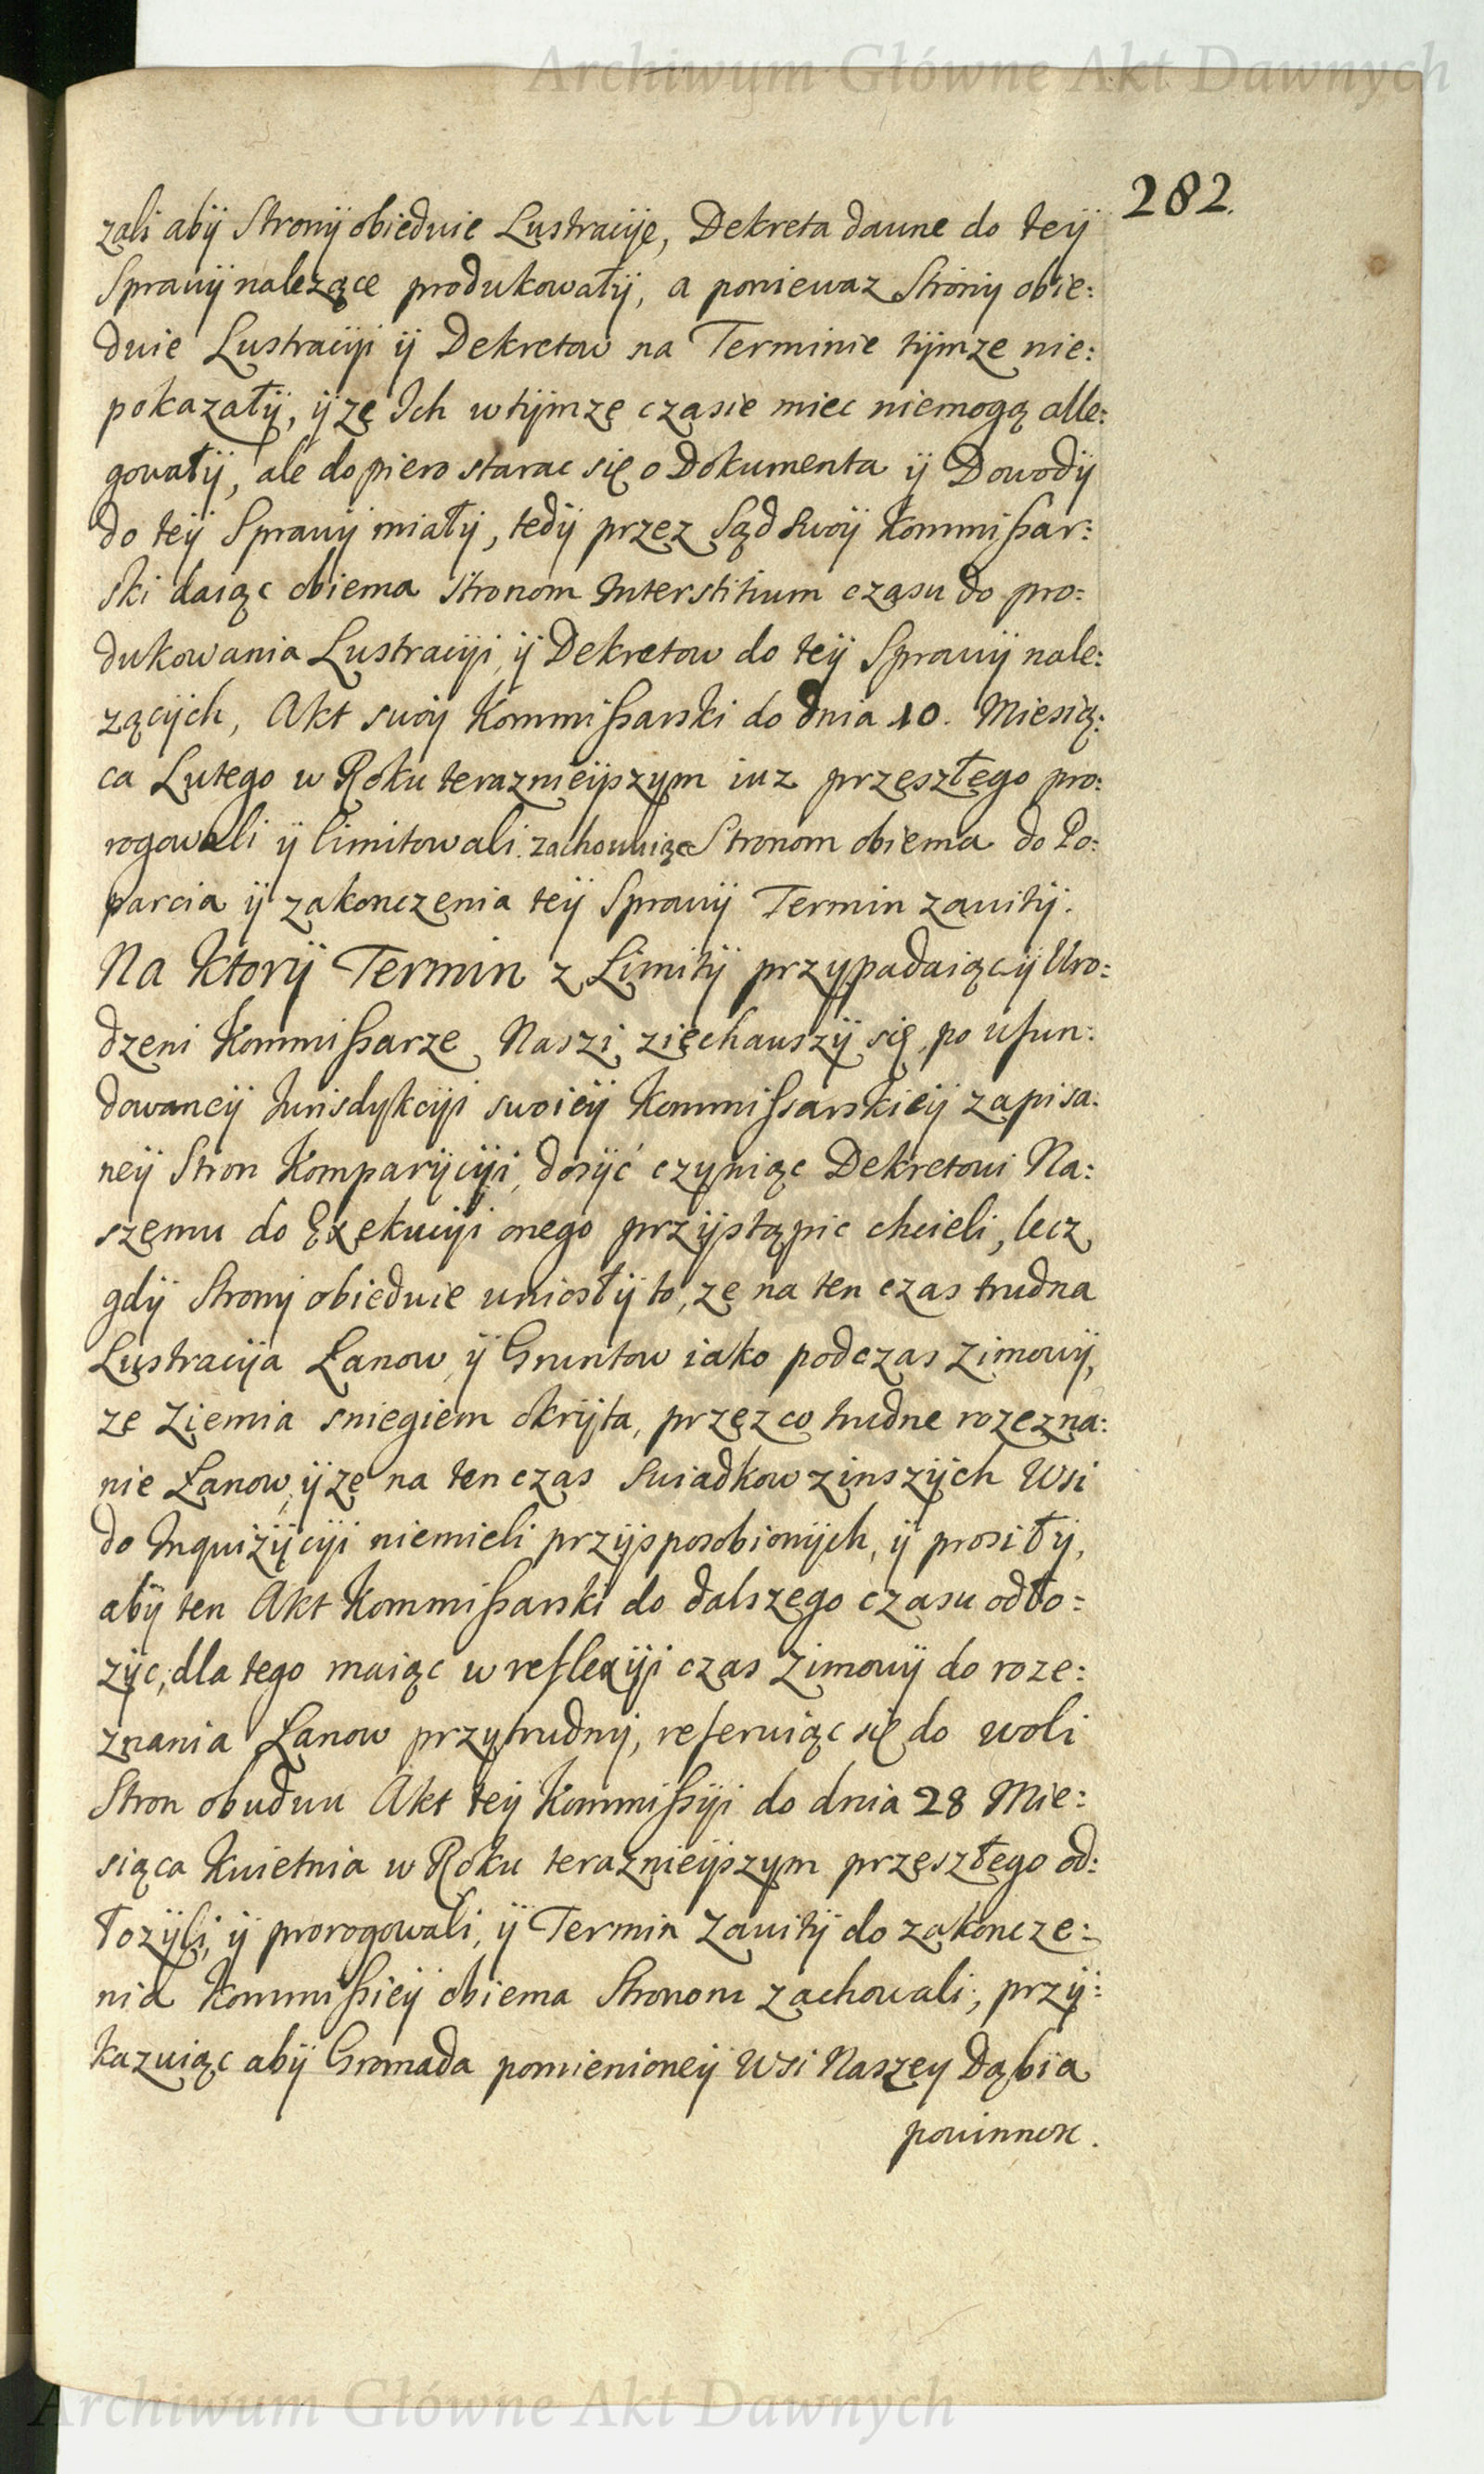 Archiwum Główne Akt Dawnych
282.
zali abÿ Stronÿ obiedwie Lustracÿe, Dekreta dawne do teÿ
Sprawÿ nalezące produkowałÿ, a poniewaz Stronÿ obie:
dwie Lustracÿi ÿ Dekretow na Terminie tÿmze nie:
pokazałÿ, ÿ ze Ich w tÿmze czasie miec niemogą alle:
gowałÿ, ale dopiero starac się o Dokumenta ÿ Dowodÿ
do teÿ Sprawÿ miałÿ, tedÿ przez Sąd swoÿ Kommißar:
ski daiąc obiema Stronom Interstitium czasu do pro:
dukowania Lustracÿi, ÿ Dekretow do teÿ Sprawÿ nale:
zącÿch, Akt swoÿ Kommißarski do dnia 10. Miesią:
ca Lutego w Roku teraznieÿszym iuz przeszłego pro:
rogowali ÿ limitowali. zachowuiąc Stronom obiema do Po:
parcia ÿ zakonczenia teÿ Sprawÿ Termin zawitÿ.
Na Ktorÿ Termin z Limitÿ przypadaiącÿ Uro:
dzeni Kommißarze Naszi ziechawszÿ się, po ufun:
dowaneÿ Jurisdykcÿi swoieÿ Kommißarskieÿ zapisa:
neÿ Stron Komparÿcÿi, dosÿć czyniąc Dekretowi Na:
szemu do Exekucÿi onego przÿstąpic chcieli, lecz
gdÿ Stronÿ obiedwie wniosłÿ to, ze na ten czas trudna
Lustracÿa Łanow ÿ Gruntow iako podczas Zimowÿ,
ze Ziemia sniegiem okrÿta, przez co trudne rozezna:
nie Łanow, ÿ ze na ten czas swiadkow zinszÿch Wsi
do Inquizÿcÿi niemieli przÿsposobionÿch, ÿ prosiłÿ,
abÿ ten Akt Kommißarski do dalszego czasu odło:
zÿc, dla tego maiąc w reflexÿi czas Zimowÿ do roze:
znania Łanow przytrudnÿ, referuiąc się do woli
Stron obudwu Akt teÿ Kommißÿi do dnia 28 Mie:
siąca Kwietnia w Roku teraznieÿszym przeszłego od:
łozÿli, ÿ prorogowali, ÿ Termin Zawitÿ do zakoncze:
nia Kommißieÿ obiema Stronom zachowali, przÿ:
kazuiąc abÿ Gromada pomienioneÿ Wsi Naszey Dąbia
powinnosc.
Archiwum Główne Akt Dawnych